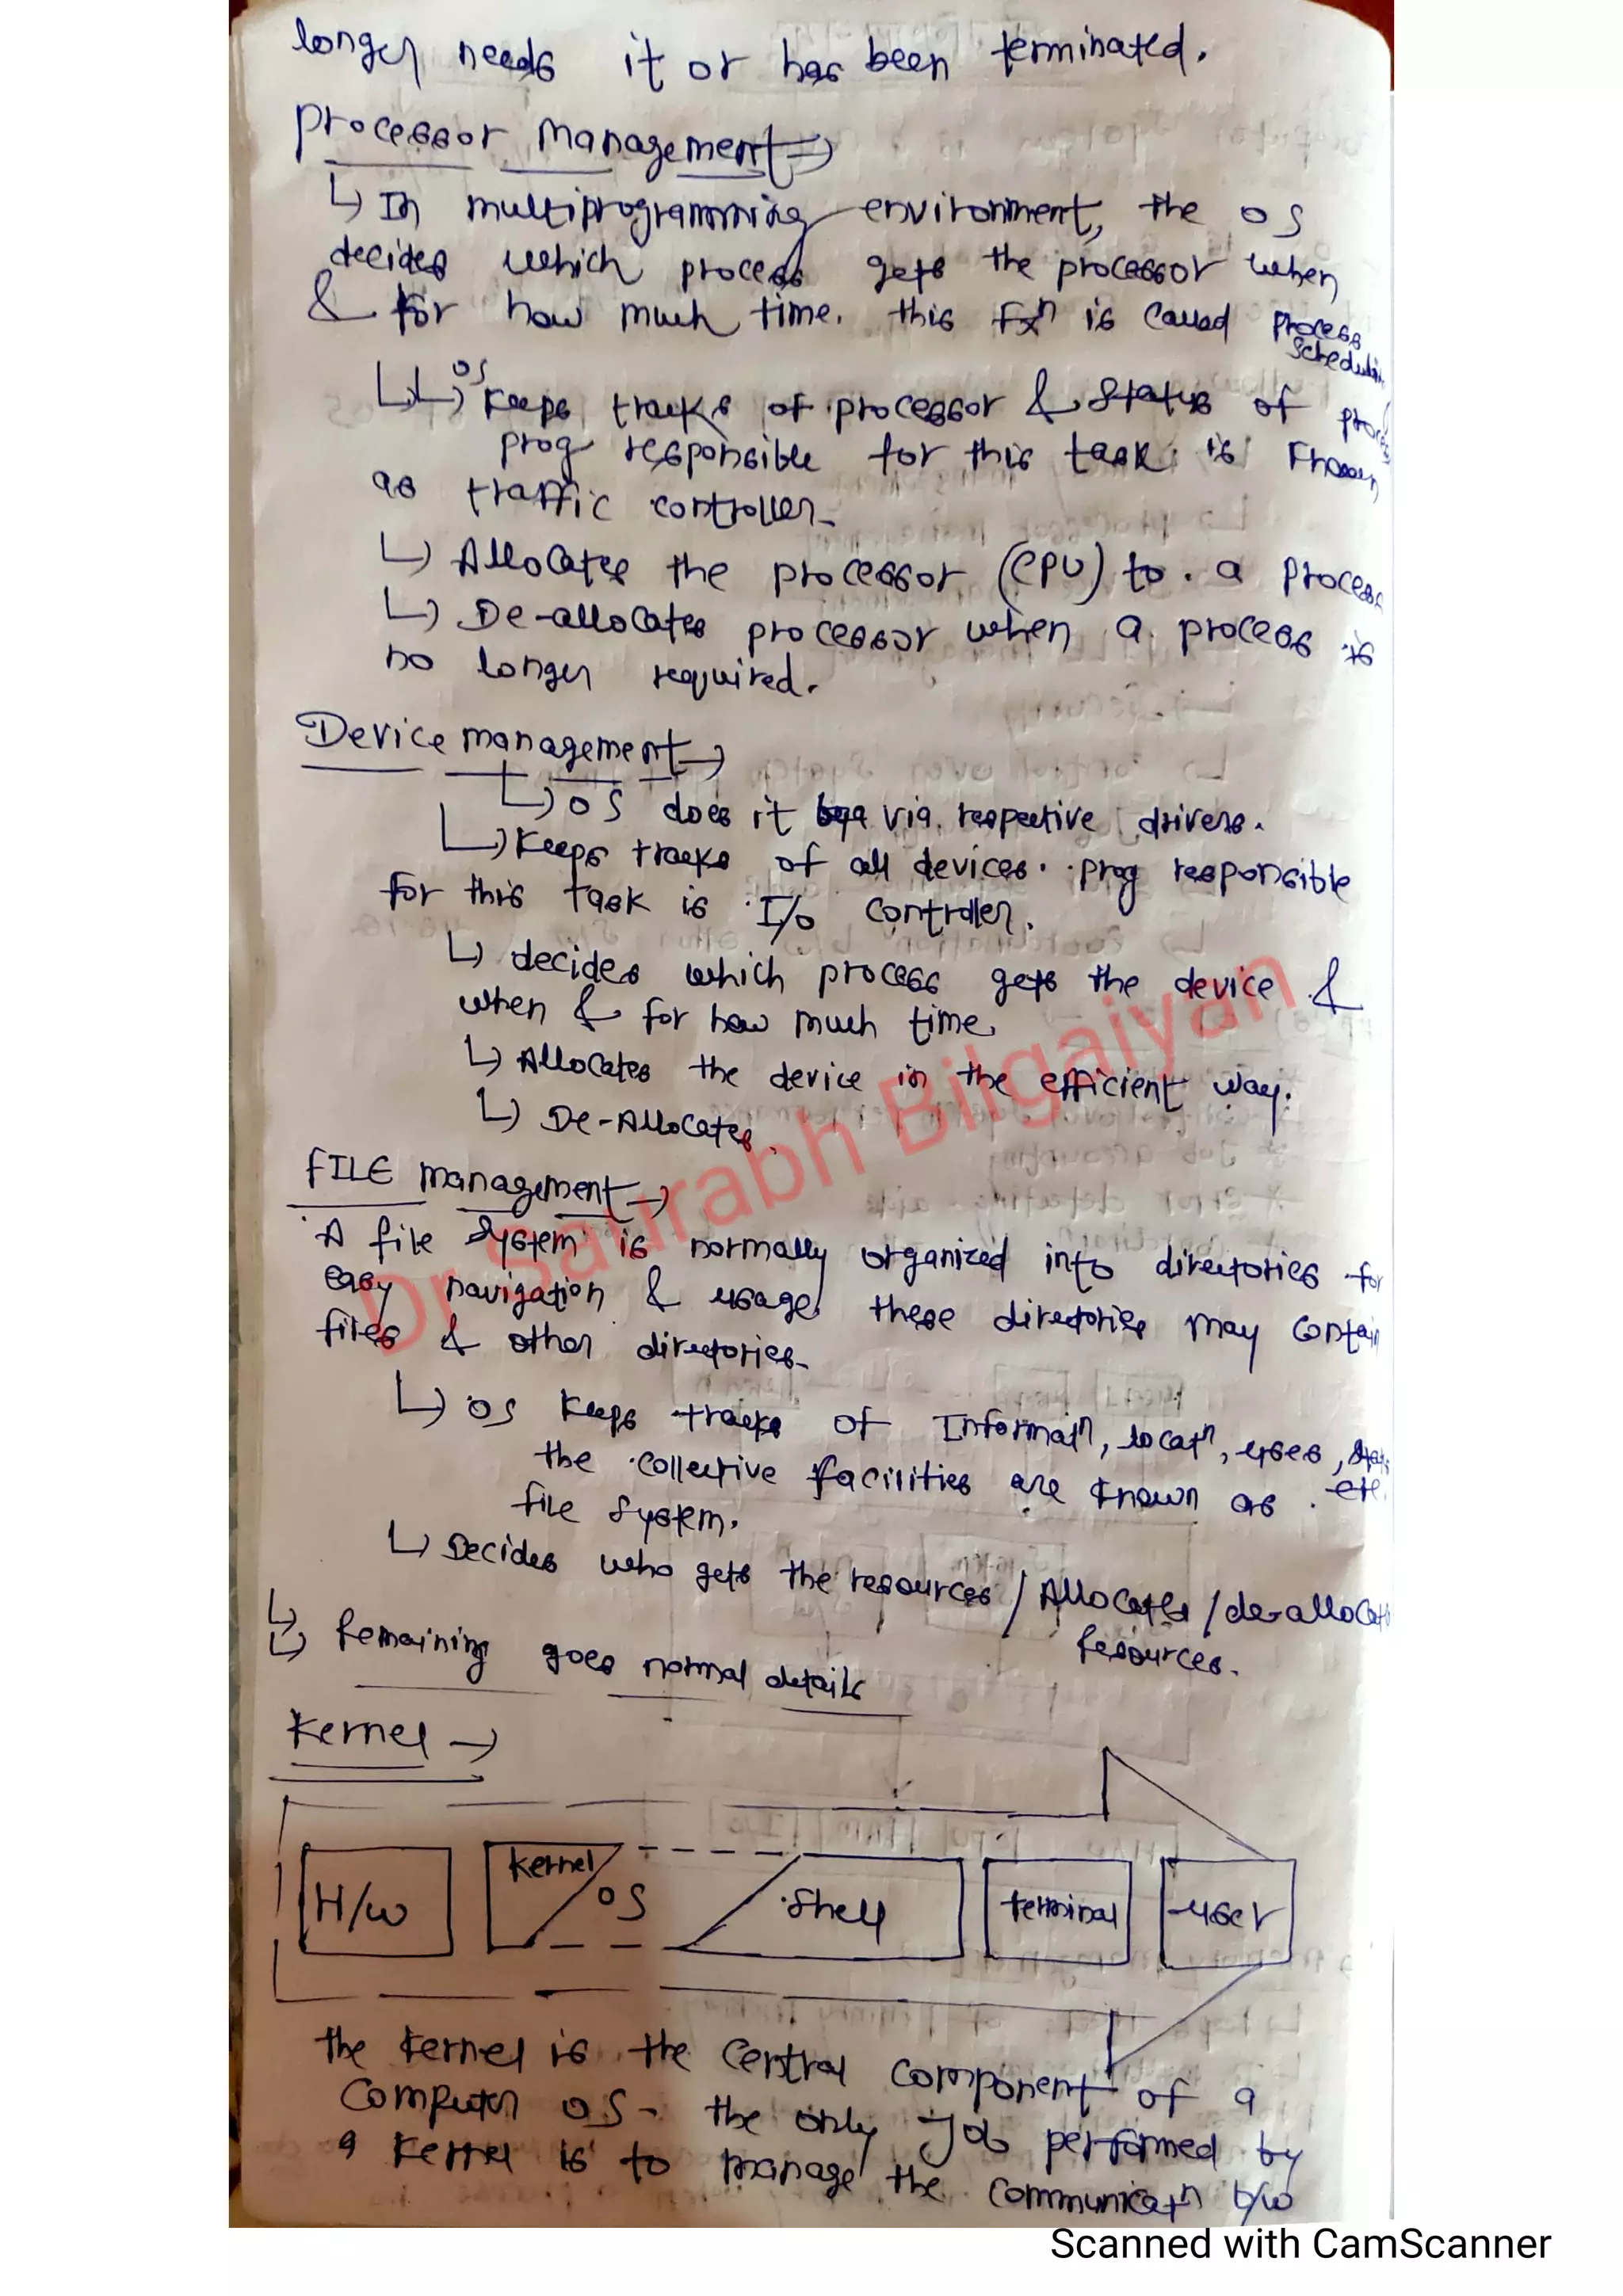 longer needs it or has been terminated.
Processor Management ⇒
↳ In multiprogramming environment, the OS
decides which process gets the processor when
& for how much time. this Fxⁿ is called process
scheduling
↳↳ OS keeps tracks of processor & status of process
prog responsible for this task is known
as traffic controller.
↳ Allocates the processor (CPU) to a process
↳ De-allocates processor when a process is
no longer required.
Device management →
↳ OS does it via respective drivers.
↳ Keeps tracks of all devices. prog responsible
for this task is I/o controller.
↳ decides which process gets the device &
when & for how much time.
↳ Allocates the device in the efficient way.
↳ De-Allocates.
FILE management →
A file system is normally organized into directories for
easy navigation & usage. these directories may contain
files & other directories.
↳ OS keeps tracks of Informatⁿ, locatⁿ, uses,
etc.
the collective facilities are known as
file system.
↳ Decides who gets the resources / Allocates / de-allocate
resources.
↳
↳ Remaining goes normal details
Kernel →
H/w kernel OS Shell terminal user
the kernel is the central component of a
computer OS. the only job performed by
a kernel is to manage the communicatⁿ b/w
Dr Saurabh Bilgaiyan
Scanned with CamScanner